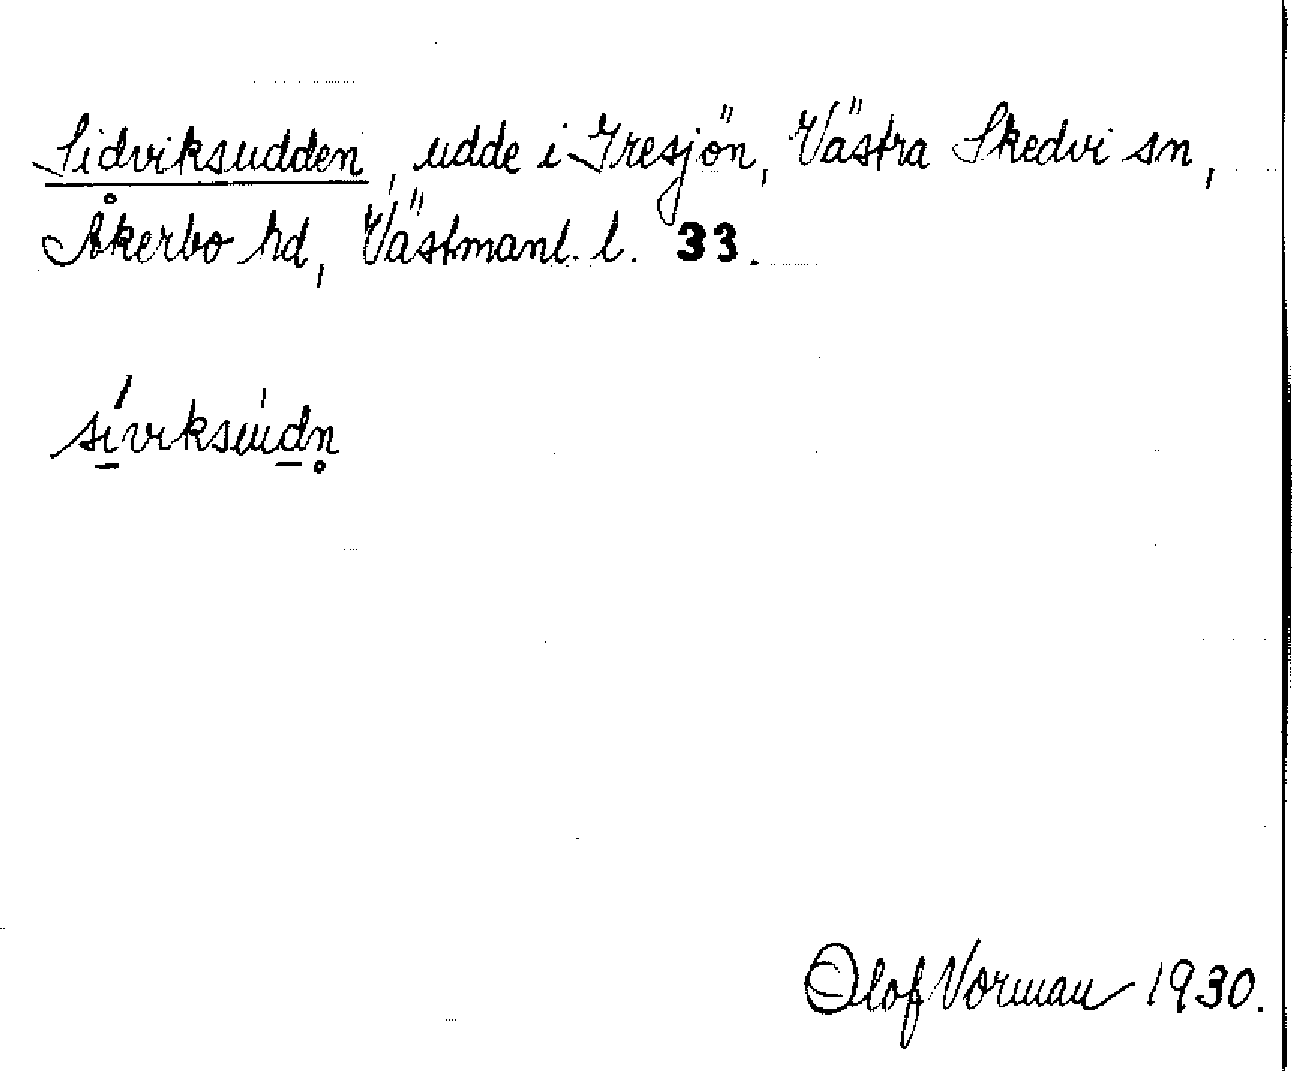 Sidviksudden, udde i Gresjön, Västra Skedvi sn,
Åkerbo hd, Västmanl. l. 33.
Olof Vorman 1930.